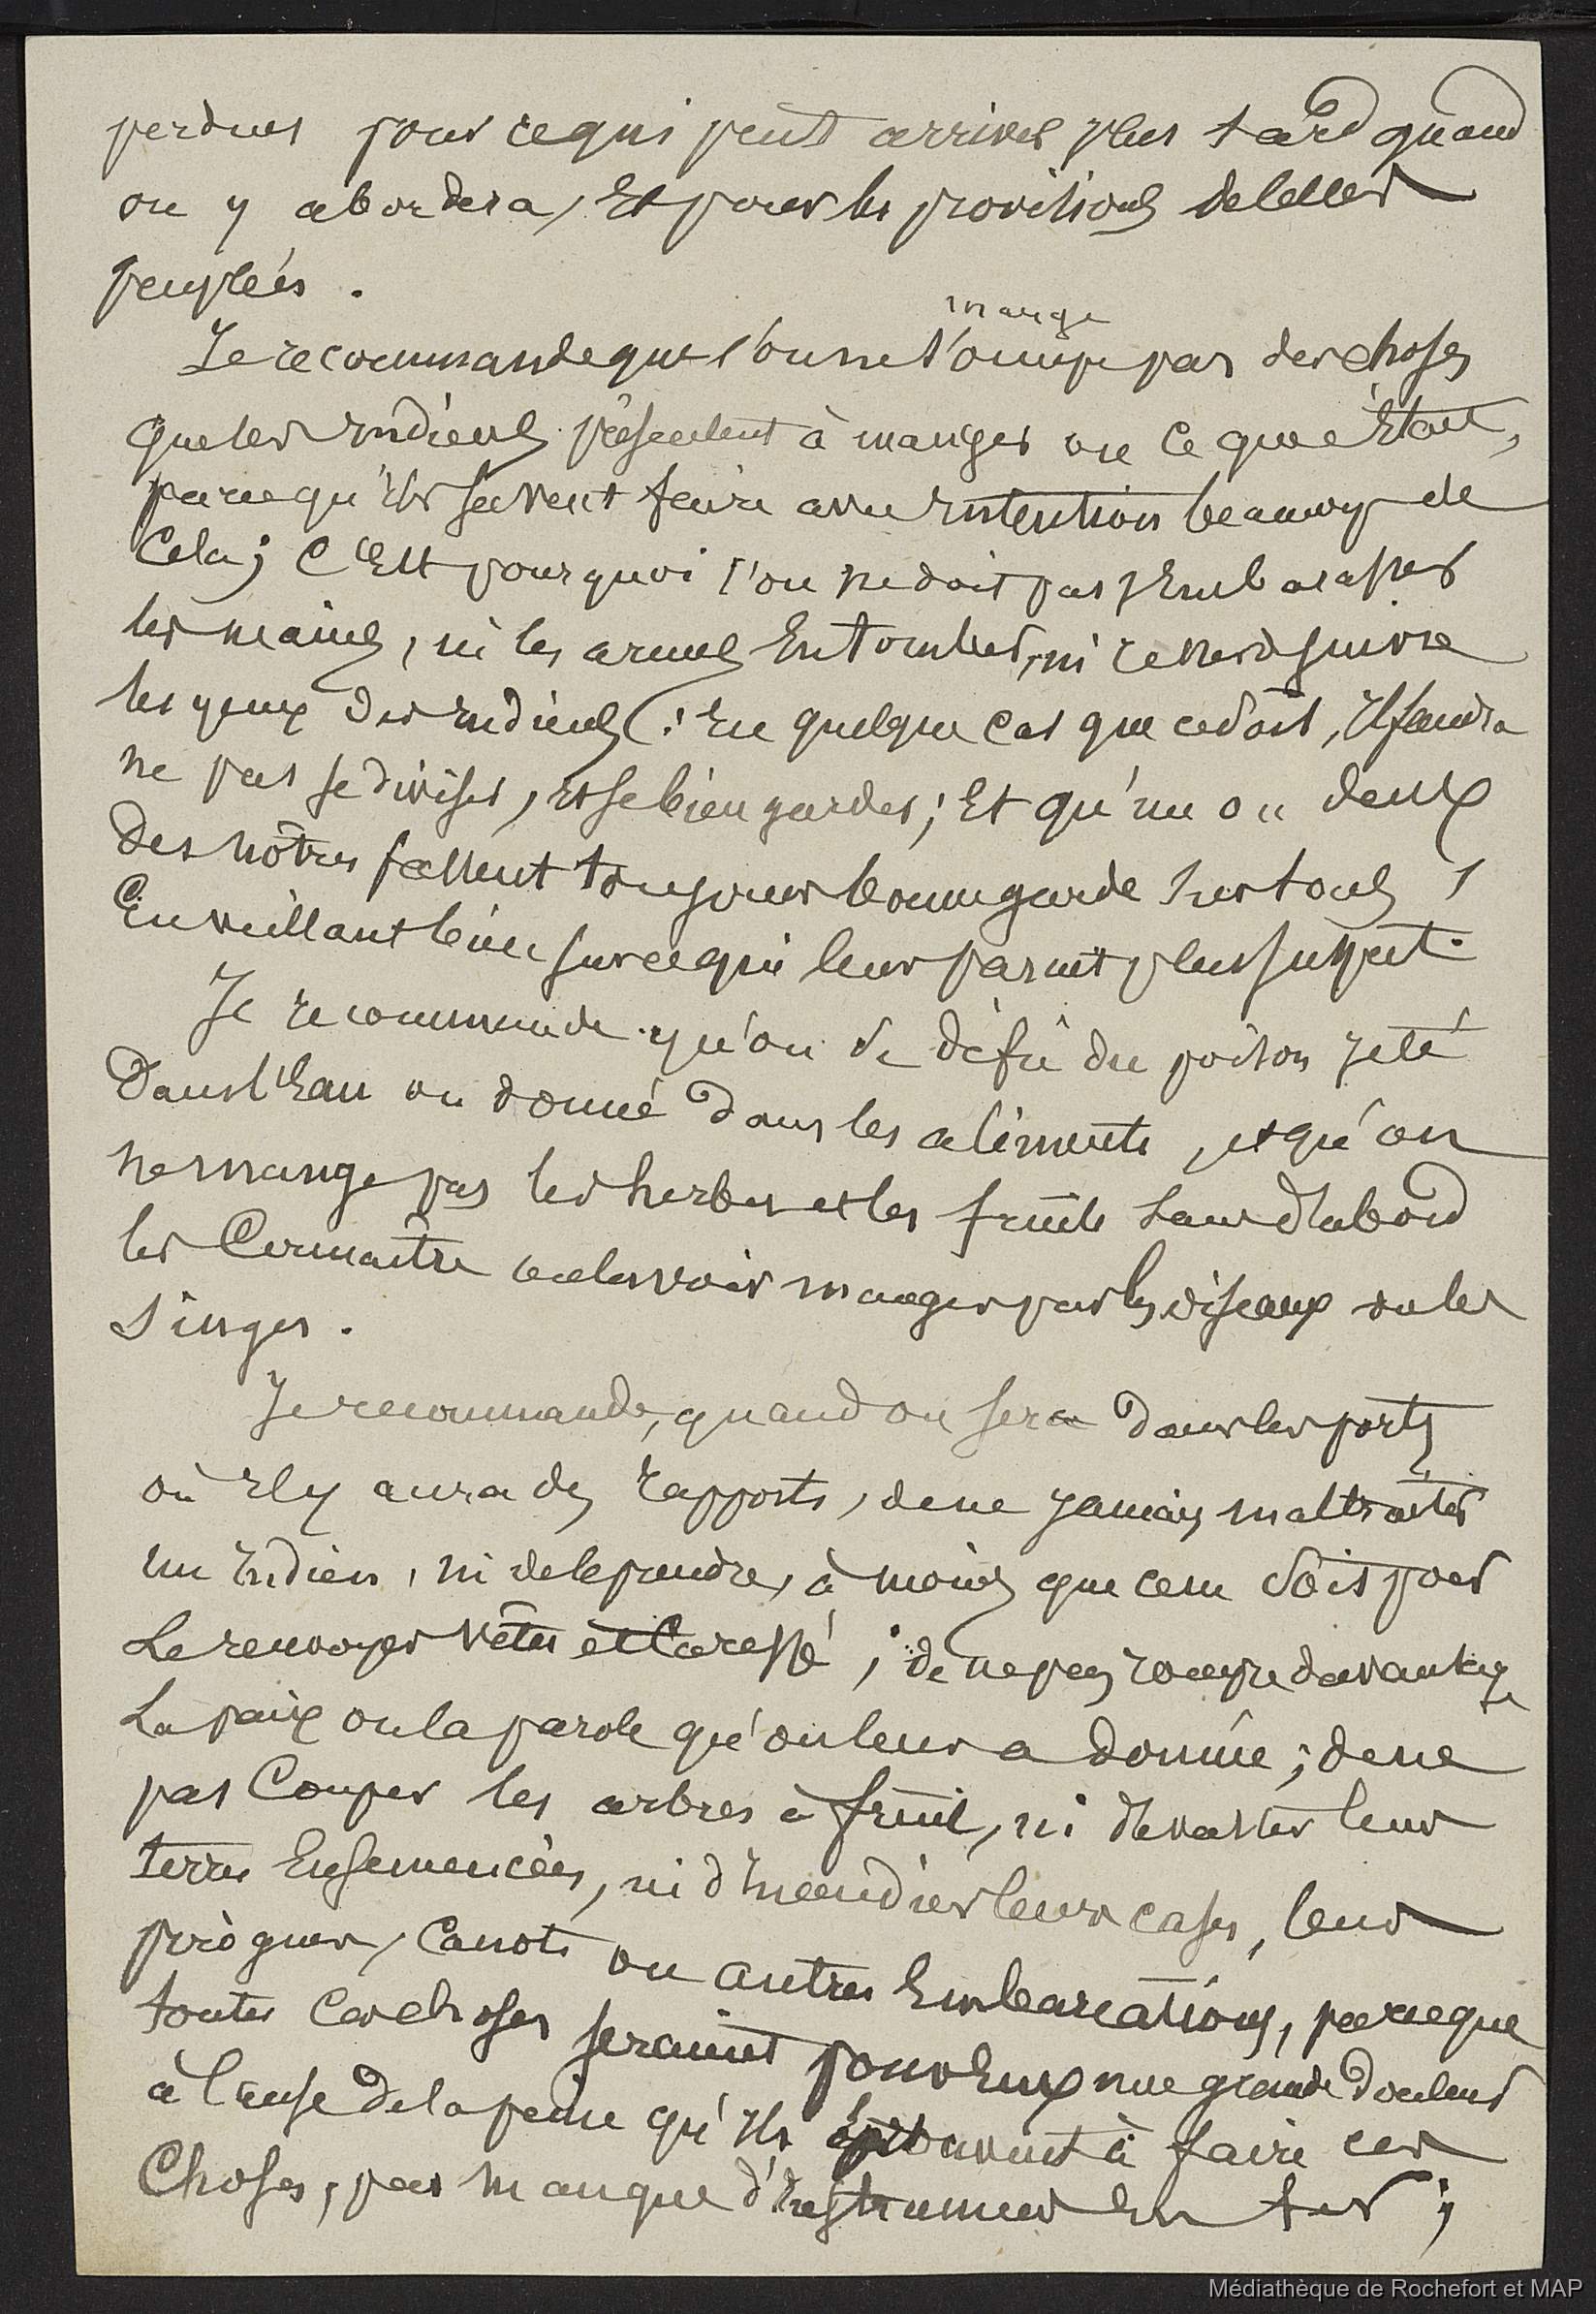 perdues pour ce qui peut arriver plus tard quand
on y abordera, et pour les provisions de celles
peuplées.
mange
Je recommande que l'on ne s'occupe pas des choses
que les Indiens présentent à manger ou ce que c'était,
parce qu'ils savent faire avec intention beaucoup de
cela; c'est pourquoi l'on ne doit pas s'embarasser
les mains, ni les armes en tomber, ni cesser de suivre
les yeux des Indiens; en quelque cas que ce soit, il faudra
ne pas se diviser, et se bien garder; et qu'un ou deux
des nôtres fassent toujours bonne garde sur tous,
en veillant bien sur ce qui leur paraît plus suspect.
Je recommande qu'on se défie du poison jeté
dans l'eau ou donné dans les aliments, et qu'on
ne mange pas les herbes et les fruits sans d'abord
les connaître ou les voir manger par les oiseaux ou les
singes.
Je recommande, quand on sera dans les ports
où il y aura des rapports, de ne jamais maltraiter
un Indien, ni de le prendre, à moins que ce ne soit pour
le renvoyer vêtu et caressé; de ne pas rompre davantage
la paix ou la parole qu'on leur a donnée; de ne
pas couper les arbres à fruit, ni dévaster leurs
terres ensemencées, ni d'incendier leurs cases, leurs
pirogues, canots ou autres embarcations, parce que
toutes ces choses seraient pour eux une grande douleur
à cause de la peine qu'ils éprouvent à faire ces
choses, par manque d'instrumens en fer;
Médiathèque de Rochefort et MAP